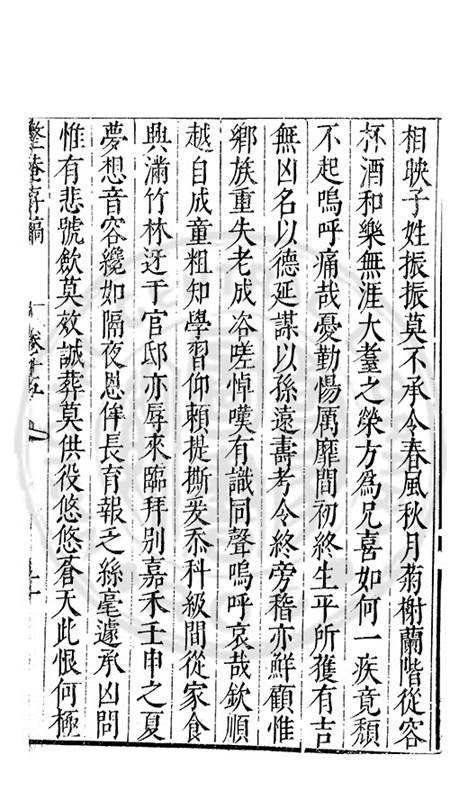 相暎子姓振振莫不承令春風秋月菊榭蘭階從容
杯酒和樂無涯大耋之榮方爲兄喜如何一疾竟頽
不起嗚呼痛哉憂勤惕厲靡間初終生平所獲有吉
無凶名以德延謀以孫遠壽考令終旁稽亦鮮顧惟
鄉族重失老成咨嗟悼嘆有識同聲嗚呼哀哉欽順
越自成童粗知學習仰賴提撕爰忝科級間從家食
興滿竹林迓于官邸亦辱來臨拜别嘉禾壬申之夏
夢想音容纔如隔夜恩侔長育報乏絲毫遽承凶問
惟有悲號飲莫效誠葬莫供役悠悠蒼天此恨何極
整菴存稿
卷十五